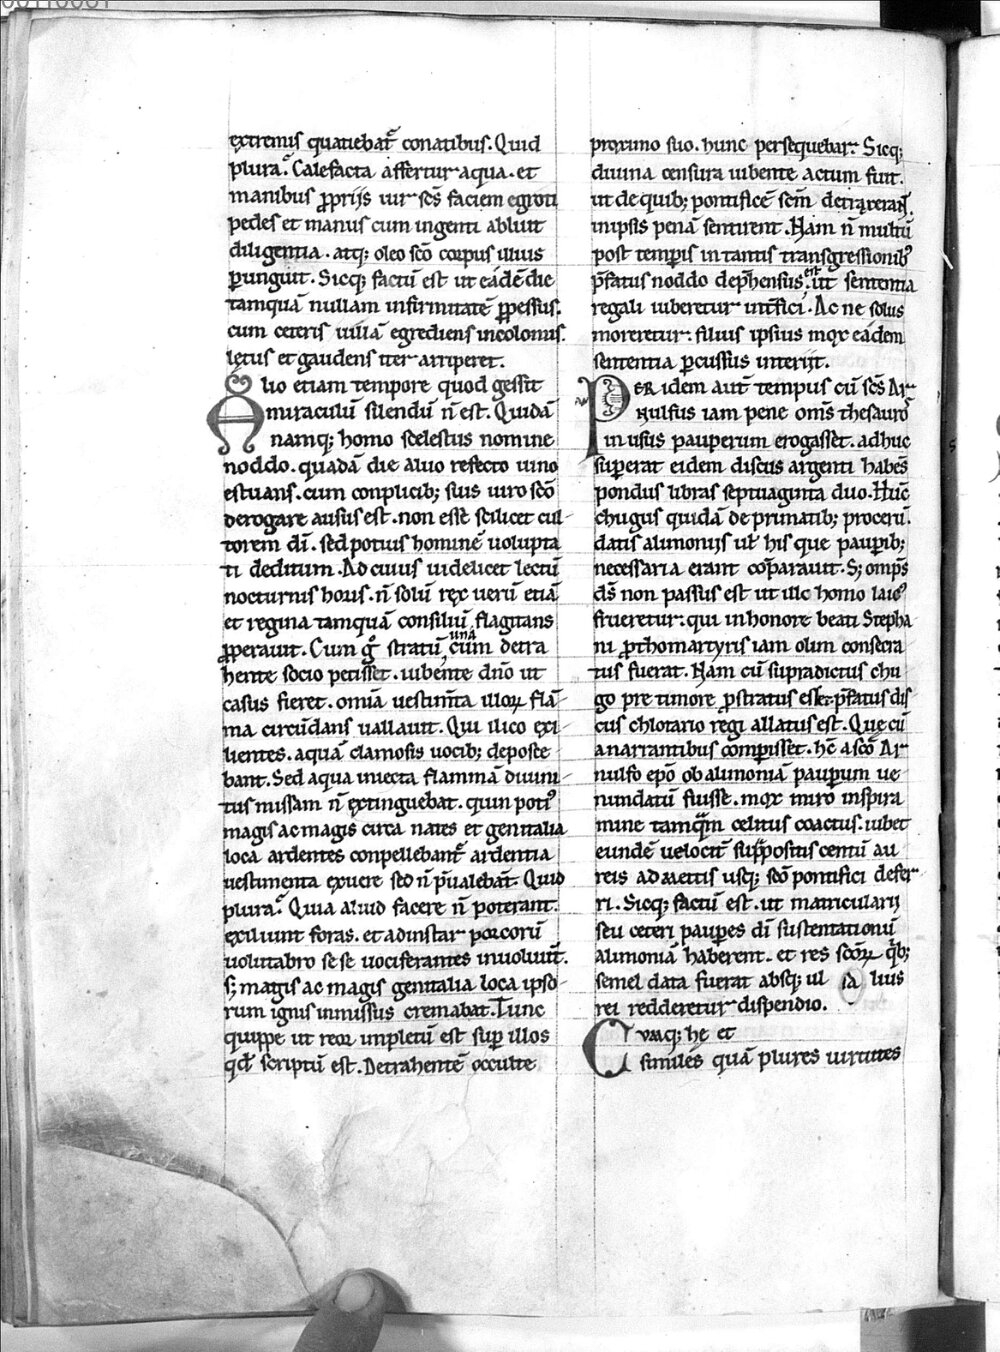 extremis quatiebat᷑ conatibus. Quid
plura? Calefacta affertur aqua. et
manibus ꝓprijs uir scs̄ faciem egroti
pedes et manus cum ingenti abluit
diligentia. atq; oleo scō corpus illius
ꝑunguit. Sicq; factū est ut eádē die
tamquā nullam infirmitatē ꝑpessus.
cum ceteris uillā egrediens incolomis.
lętus et gaudens iter arriperet.
Alio etiam tempore quod gessit
miraculū silendū n̄ est. Quidā
namq; homo scelestus nomine
noddo. quadā die aluo refecto uino
estuans. cum conplicib; suis uiro scō
derogare ausus est. non esse scilicet cul
torem dī. sed potius hominē uolupta
ti deditum. Ad cuius uidelicet lectū
nocturnis horis. n̄ solū rex uerū etiā
et regina tamquā consiliū flagitans
ꝓperauit. Cum g̊ stratū, una cum detra
hente socio petisset. iubente dn̄o ut
casus fieret. omia uestim̄ta illoꝝ flā
ma circūdans uallauit. Qui ilico exi
lientes. aquā clamosis uocib; deposce
bant. Sed aqua inuecta flammā diuini
tus missam n̄ extinguebat. quin poti᷒
magis ac magis circa nates et genitalia
loca ardentes conpellebant᷑ ardentia
uestimenta exuere sed n̄ p̄ualebāt. Quid
plura? Quia aliud facere n̄ poterant.
exiliunt foras. et ad instar porcorū
uolutabro se se uociferantes inuoluūt.
s; magis ac magis genitalia loca ipso
rum ignis inmissus cremabat. Tunc
quippe ut reor impletū est suꝑ illos
qd̄ scriptū est. Detrahentē occulte
proximo suo. hunc persequebar. Sicq;
diuina censura iubente actum fuit.
ut de quib; pontificē scm̄ detraxerāt,
in ipsis penā sentirent. Nam n̄ multū
post temp̄is in tantis transgressionib᷒
p̄fatus noddo dep̄hensus est. ut sententia
regali iuberetur int̄fici. Ac ne solus
moreretur. filius ipsius mox eádem
sententia ꝑcussus interijt.
PER idem aut̄ tempus cū scs̄ Ar
nulfus iam pene om̄s thesauros
in usus pauperum erogasset. adhuc
suꝑerat eidem discus argenti habēs
pondus libras septuaginta duo. Hūc
chugus quidā de primatib; procerū.
datis alimonijs ul̄ his que pauꝑib;
necessaria erant cōparauit. S; omps̄
ds̄ non passus est ut illc homo laic᷒
frueretur. qui in honore beati Stepha
ni ꝓthomartyris iam olim consecra
tus fuerat. Nam cū supradictus chu
go pre timore ꝓstratus esset. p̄fatus dis
cus chlotario regi allatus est. Que cū
a narrantibus comꝑisset. hē a scō Ar
nulfo epō ob alimoniā pauꝑum ue
nundatū fuisse. mox miro inspira
mine tamquā celitus coactus. iubet
eundē uelocit̄ suꝑpositis centū au
reis ad mettis usq; scō pontifici defer
ri. Sicq; factū est. ut matricularij
seu ceteri pauꝑes dī sustentationū
alimoniā haberent. et res scōꝝ q̄b;
semel data fuerat absq; ul sa lius
rei redderetur dispendio.
Cvaq; he et
similes quā plures uirtutes